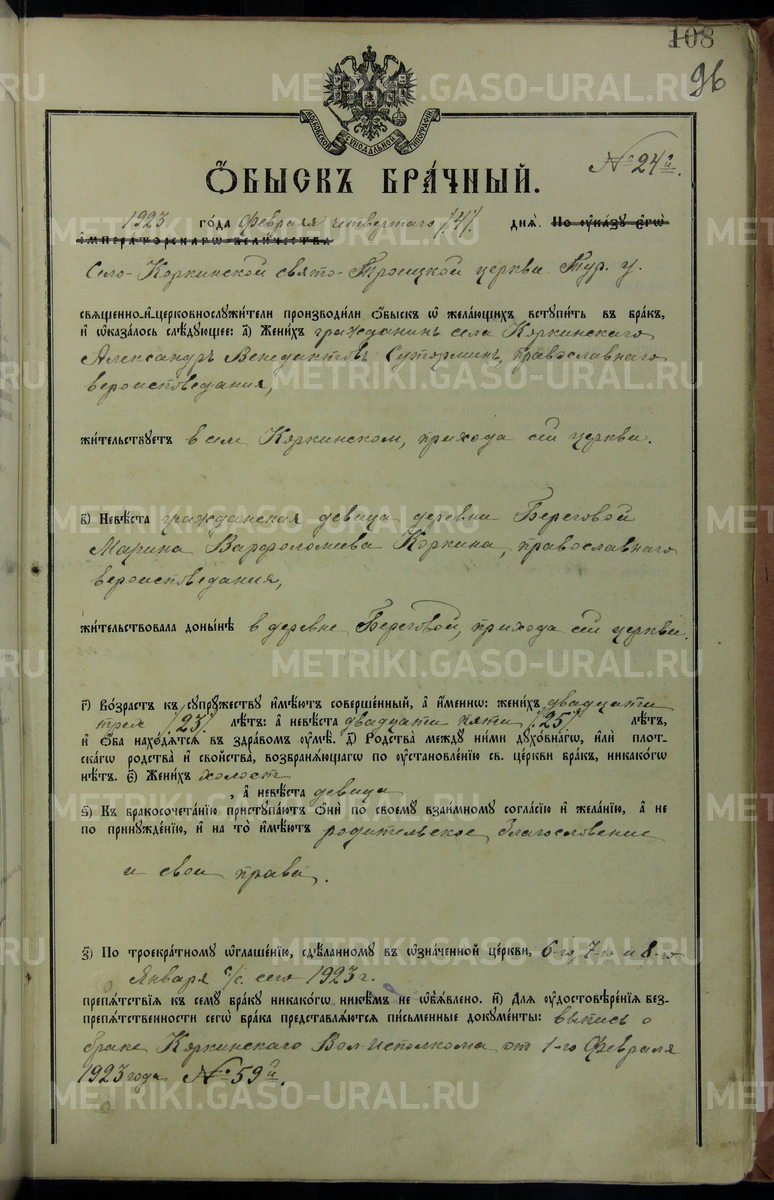 108
96
МОСКОВСКОЙ СѴНОДАЛЬНОЙ ТИПОГРАФІИ
№ 24й.
Ѻбыскъ брачный.
1923 года Февраля четвертаго /4/. дня. По ᲂуказу Єгѡ
Императорскагѡ Величества
Село-Коркинской свято-Троицкой церкви Тур. у.
священно-и-церковнослужители производили Ѻбыскъ ѡ желающихъ вступить въ бракъ,
и ѡказалось слѣдующее: а) Женихъ гражданинъ села Коркинскаго
Александръ Венедиктовъ Сутормин, православнаго
вероисповедания,
жительствуетъ в селе Коркинском, прихода сей церкви.
в) Невѣста гражданская девица деревни Береговой
Марина Варфоломиева Коркина, православнаго
вероисповедания,
жительствовала донынѣ в деревне Береговой, прихода сей церкви.
г) Возрастъ къ супружеству имѣютъ совершенный, а именнѡ: женихъ двадцати
трех /23/. лѣтъ: а невѣста двадцати пяти /25/ лѣтъ,
и Ѻба находятся въ здравомъ ᲂумѣ. д) Родства между ними духовнагѡ, или плот-
скагѡ родства и свойства, возбраняющагѡ по ᲂустановленію св. церкви бракъ, никакогѡ
нѣтъ. є) Женихъ холост
, а невѣста девица
ѕ) Къ бракосочетанію приступаютъ Ѻни по своему взаимному согласію и желанію, а не
по принужденію, и на то имѣютъ родительское благословение
и свои права.
з) По троекратному ѡглашенію, сдѣланному въ ѡзначенной церкви, 6-го, 7-го и 8-го
Января с/с. сего 1923 г.
препятствія къ сему браку никакогѡ никѣмъ не ѡбъявлено. и) Для ᲂудостовѣренія без-
препятственности сегѡ брака представляются письменные документы: выпись о
браке Коркинскаго Волисполкома от 1-го Февраля
1923 года № 59й.
METRIKI.GASO-URAL.RU